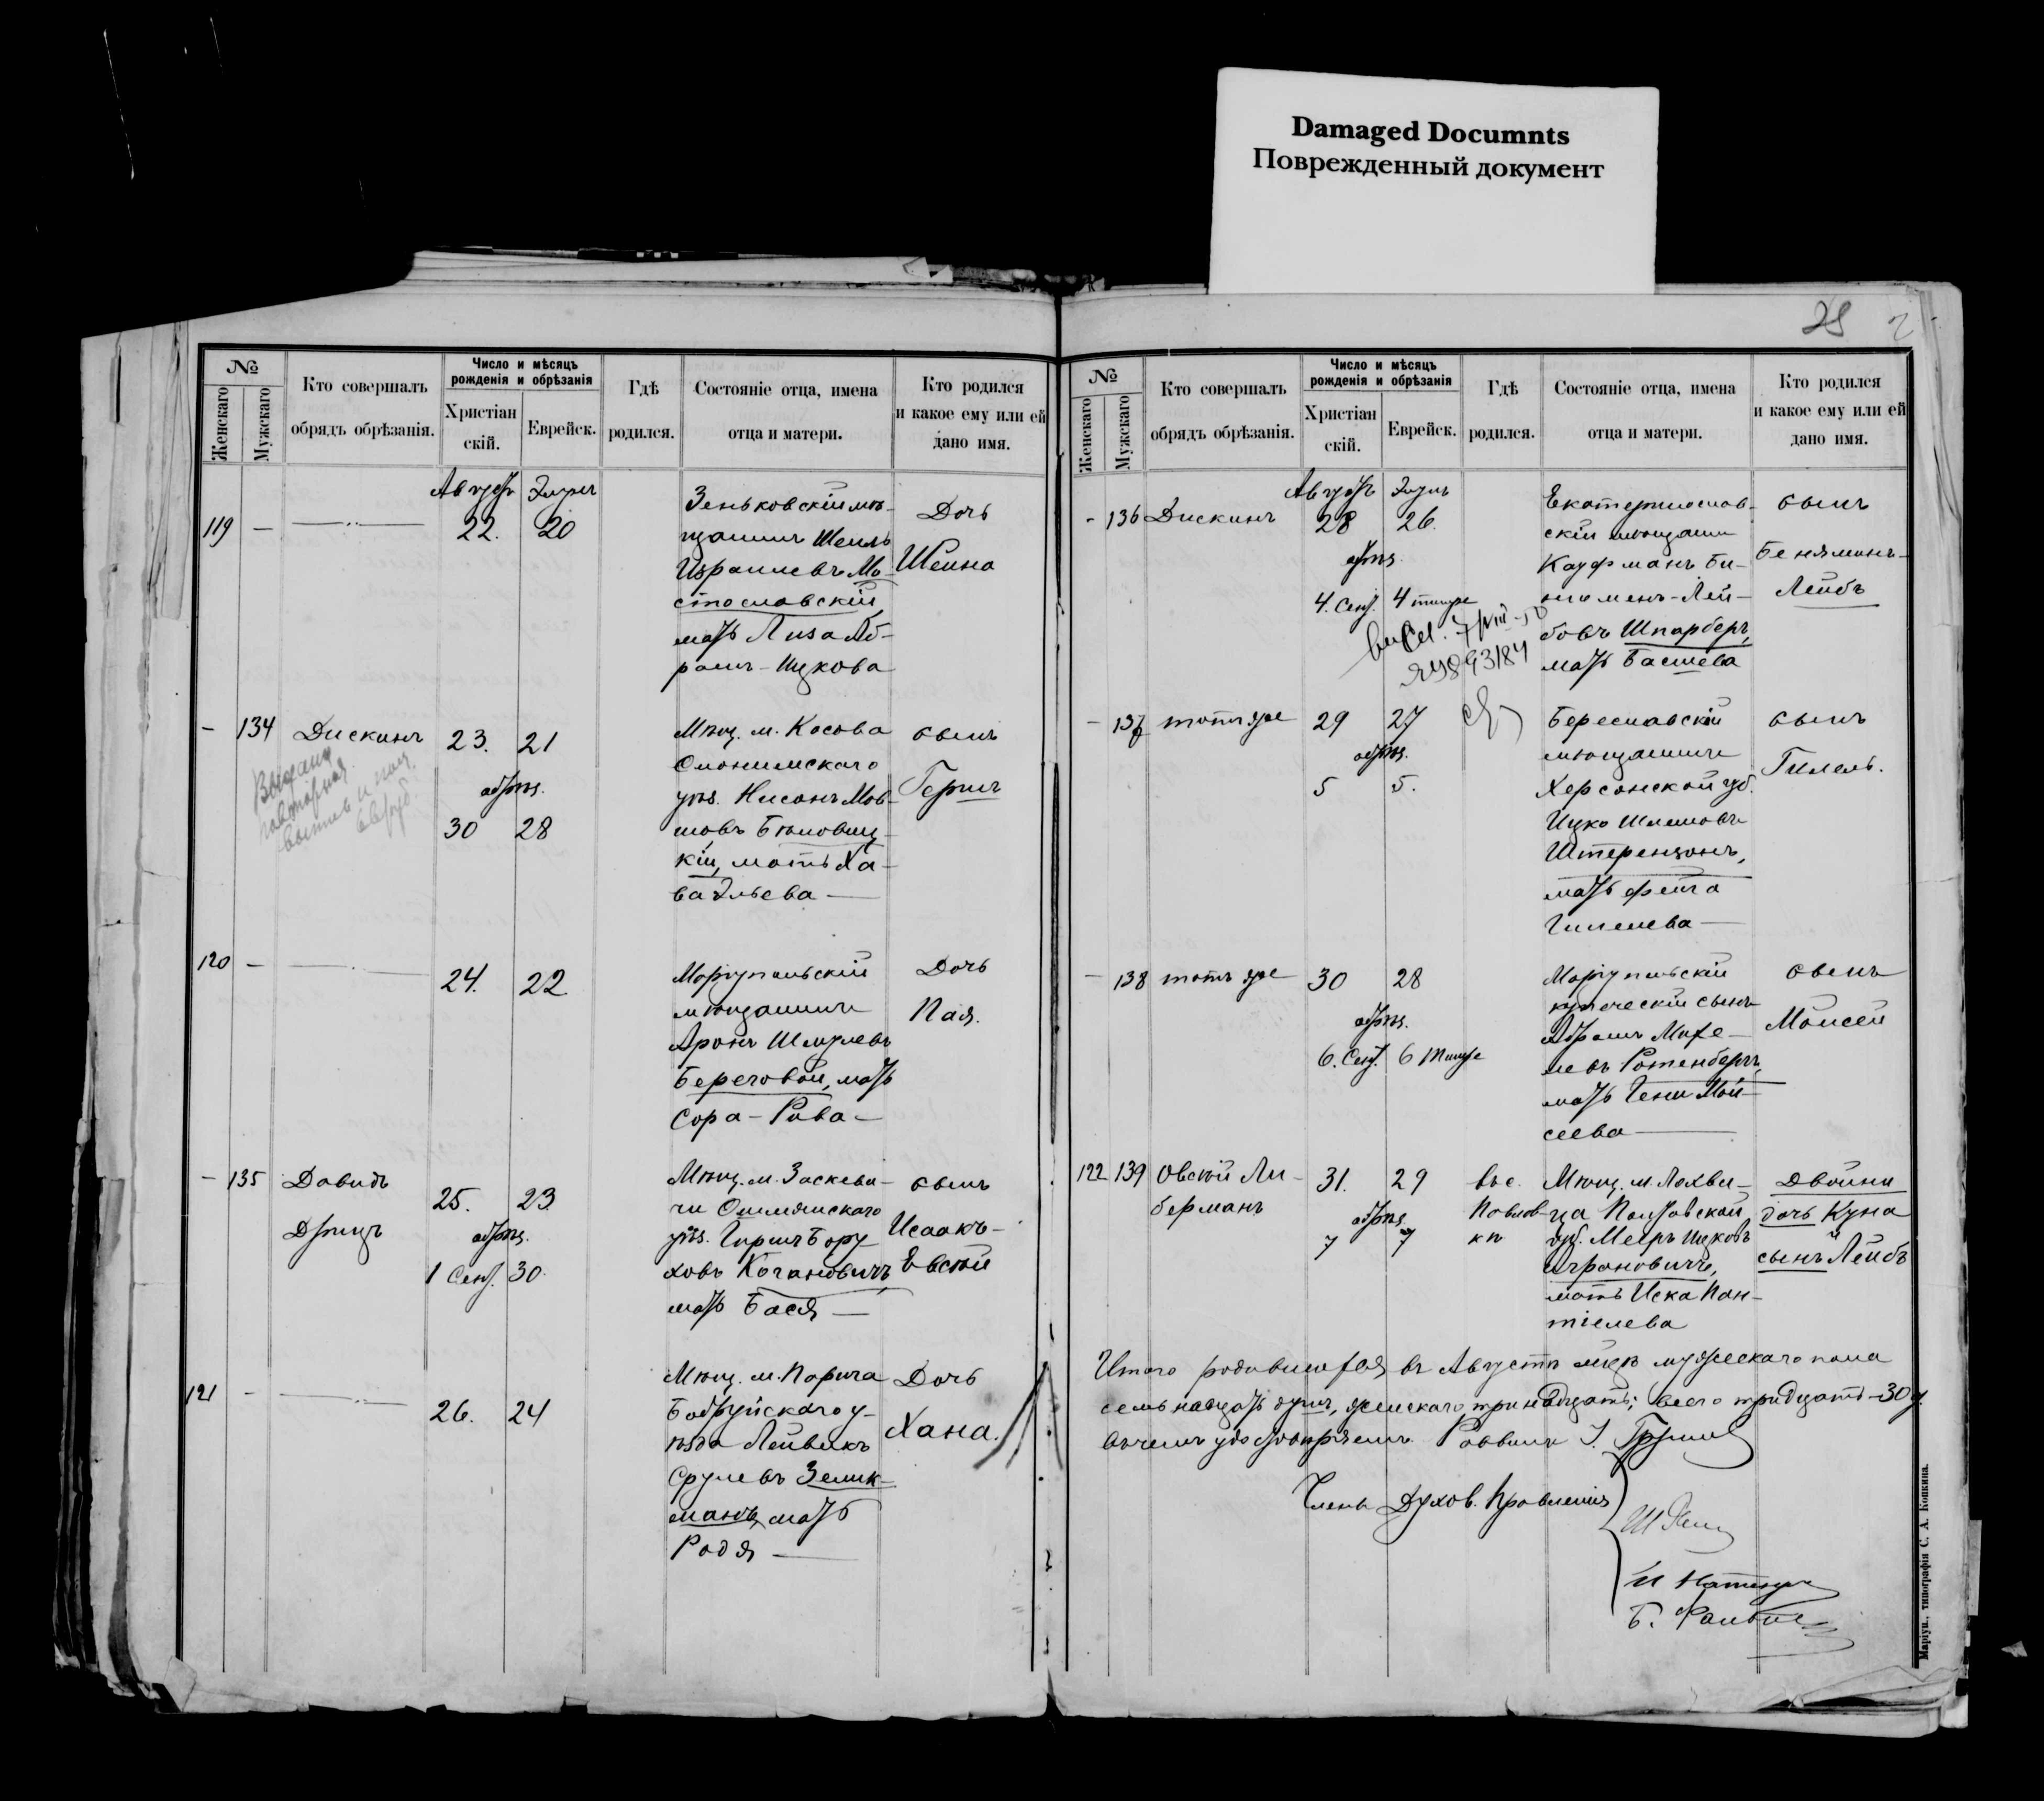 Damaged Documnts
Поврежденный документ
№
Женскаго
Мужскаго
Кто совершалъ
обрядъ обрѣзанія.
Число и мѣсяцъ
рожденія и обрѣзанія
Христіан
скій.
Еврейск.
Гдѣ
родился.
Состояніе отца, имена
отца и матери.
Кто родился
и какое ему или ей
дано имя.
Августъ Элулъ
119 — — 22. 20
Зеньковскій мѣ-
щанинъ Шепль
Израилевъ Мс-
стославскій,
мать Лиза Аб-
рамъ-Ицкова
Дочь
Шейна
— 134 Дискинъ 23. 21
обрѣз.
30 28
Выдана
повторная
Мѣщ. м. Косова
Слонимскаго
уѣз. Нисонъ Мов-
шовъ Бюловиц-
кій, мать Ха-
ва Эльева —
сынъ
Гершъ
120 — — 24. 22
Маріупольскій
мѣщанинъ
Аронъ Шмулевъ
Береговой, мать
Сора-Рива —
Дочь
Пая.
— 135 Давидъ
Дрицъ
25. 23
обрѣз.
1 Сент. 30.
Мѣщ. м. Заскеви-
чи Ошмянскаго
уѣз. Гиршъ Бору-
ховъ Когановичъ,
мать Бася —
сынъ
Исаакъ-
Евсей
121 — — 26. 24
Мѣщ. м. Парича
Бобруйскаго у-
ѣзда Лейвикъ
Срулевъ Зелик-
манъ, мать
Родя —
Дочь
Хана.
29
№
Женскаго
Мужскаго
Кто совершалъ
обрядъ обрѣзанія.
Число и мѣсяцъ
рожденія и обрѣзанія
Христіан
скій.
Еврейск.
Гдѣ
родился.
Состояніе отца, имена
отца и матери.
Кто родился
и какое ему или ей
дано имя.
Августъ Элулъ
- 136 Дискинъ 28 26.
обрѣз.
4. Сент. 4 тишре
Екатеринослав-
скій мѣщанин
Кауфманъ Би-
нюменъ-Лей-
бовъ Шпарберъ,
мать Басшева
сынъ
Бенямин-
Лейбъ
— 137 тотъ же 29 27
обрѣз.
5 5.
Береславскій
мѣщанинъ
Херсонской губ.
Ицко Шлемовъ
Штерензонъ,
мать Фейга
Гилелева —
сынъ
Гилель.
— 138 тотъ же 30 28
обрѣз.
6. Сент. 6 Тишре
Маріупольскій
купеческій сынъ
Абрамъ Михе-
левъ Ротенбергъ,
мать Гени Мой-
сеева —
сынъ
Моисей
122 139 Овсѣй Ли-
берманъ
31. 29
обрѣз.
7 7
въ с.
Павлов-
кѣ
Мѣщ. м. Лохви-
ца Полтавской
губ. Мееръ Ицковъ
Аграновичъ,
мать Иска Пан-
тіелева
Двойни
дочь Куна
и
сынъ Лейбъ
Итого родившихся въ Августѣ мцѣ мужескаго пола
семьнадцать душъ, женскаго тринадцать; всего тридцать - 30 д.
въ чемъ удостовѣряемъ. Раввинъ
Члены Духов. Правленія
Маріуп., типографія С. А. Копкина.